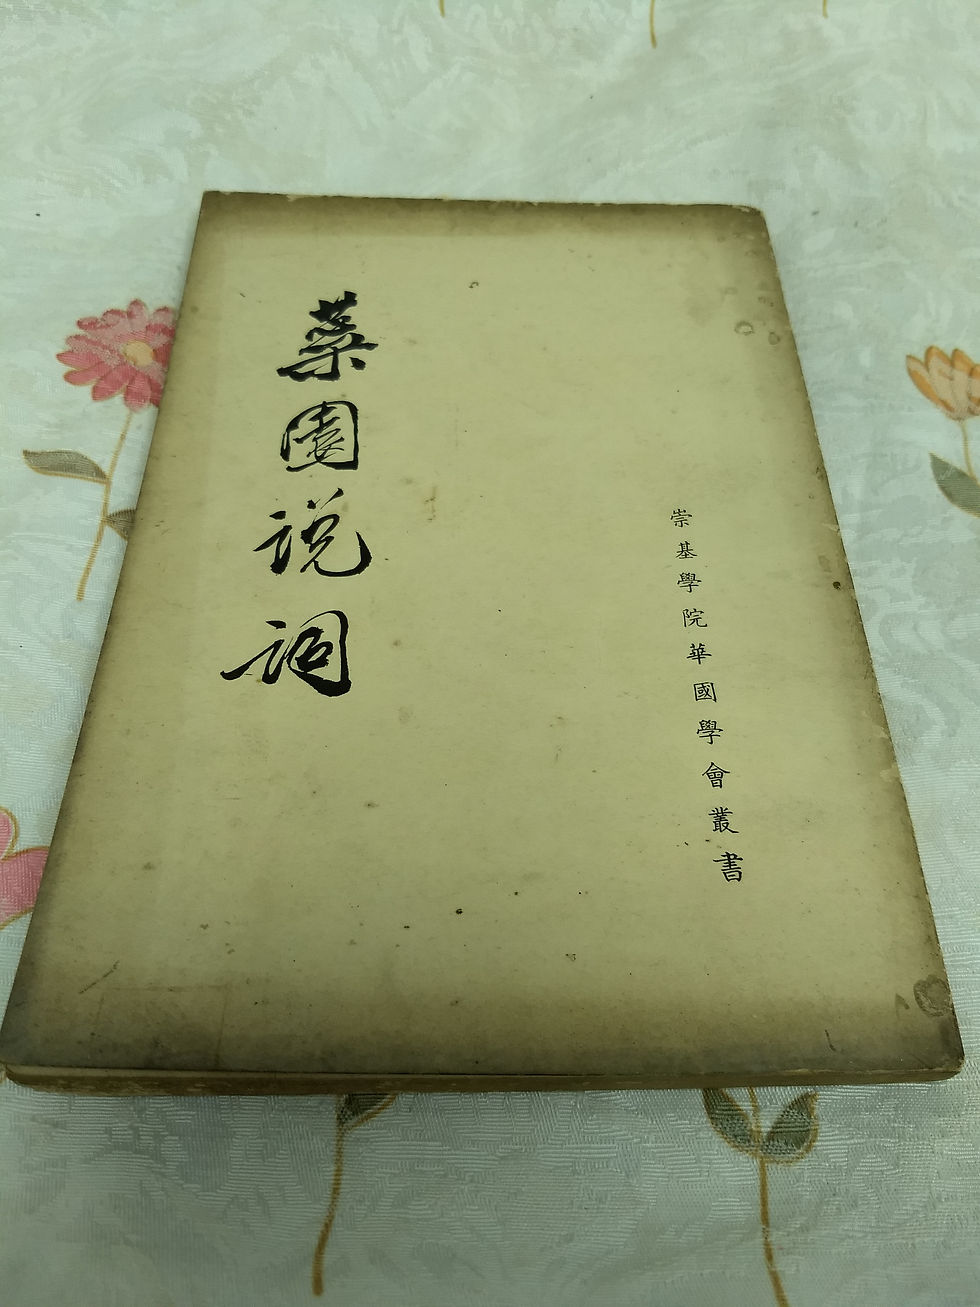 崇基學院華國學會叢書
蘂園說詞